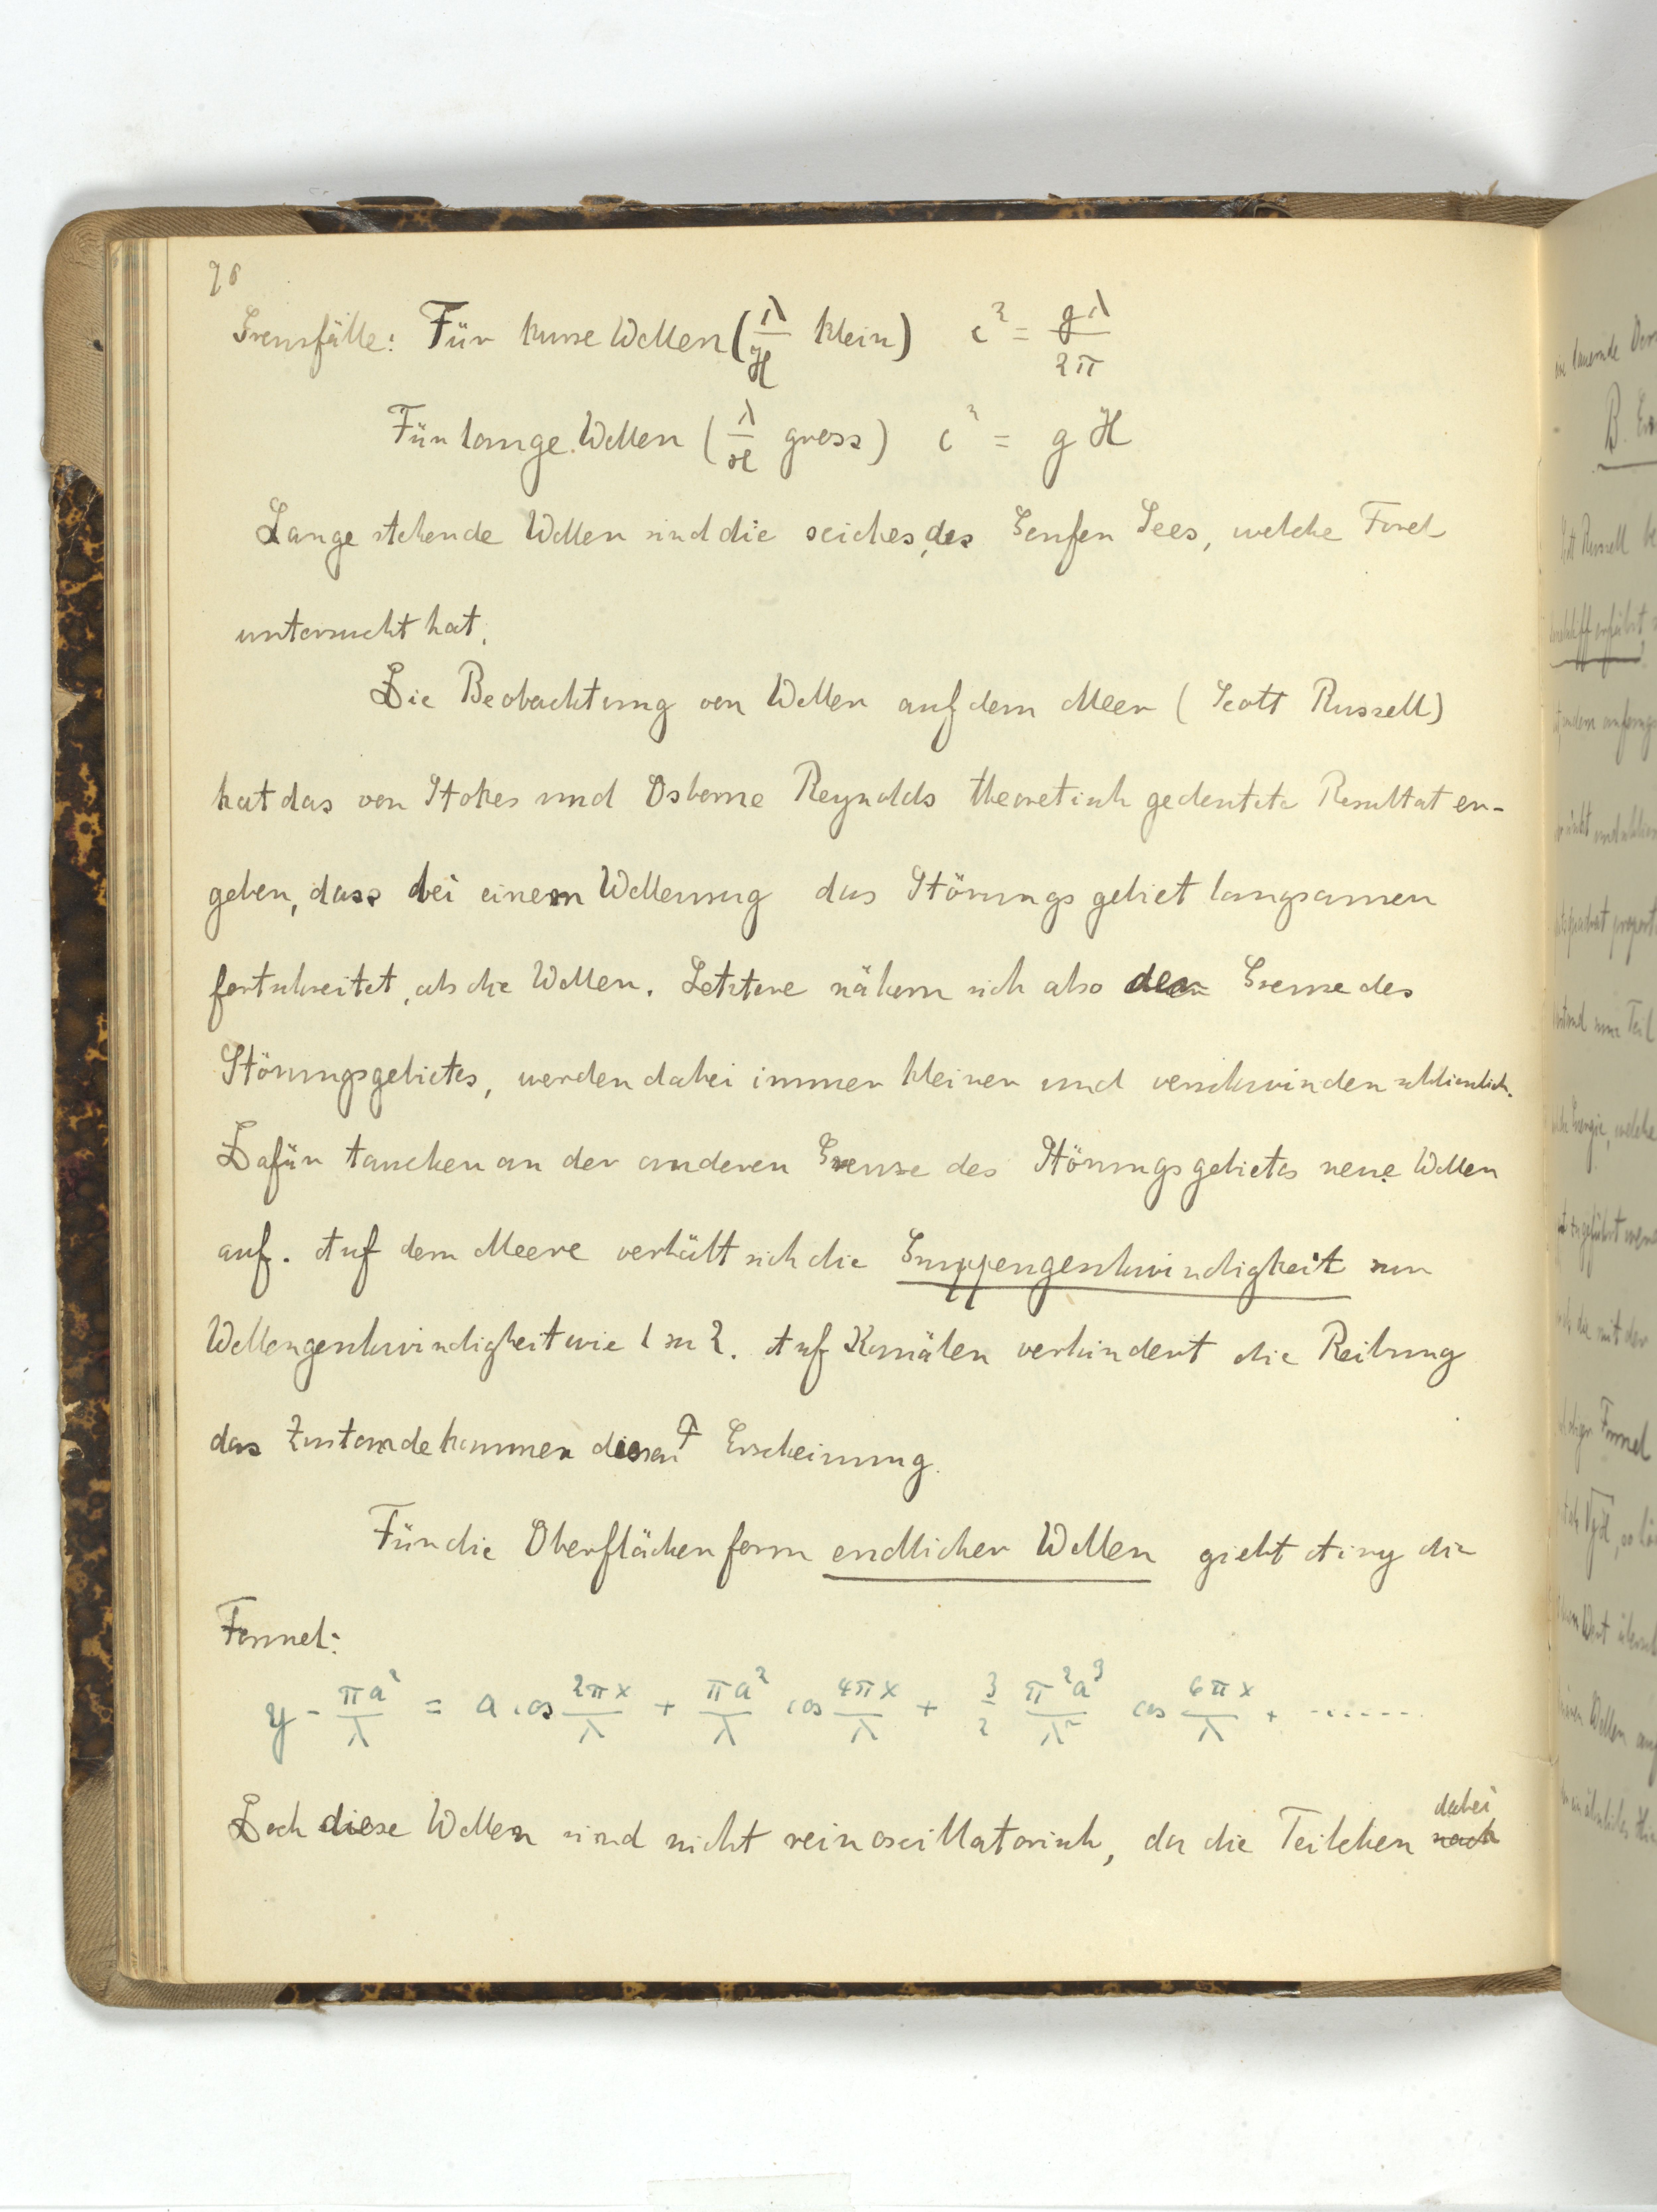 96
Grenzfälle: Für kurze Wellen (λ/H klein) c² = gλ/2π
Für lange Wellen (λ/H gross) c² = gH
Lange stehende Wellen sind die seiches des Genfer Sees, welche Forel
untersucht hat.
Die Beobachtung von Wellen auf dem Meer (Scott Russell)
hat das von Stokes und Osborne Reynolds theoretisch gedeutete Resultat er-
geben, dass bei einem Wellenzug das Störungsgebiet langsamer
fortschreitet, als die Wellen. Letztere nähern sich also der Grenze des
Störungsgebietes, werden dabei immer kleiner und verschwinden schliesslich.
Dafür tauchen an der anderen Grenze des Störungsgebietes neue Wellen
auf. Auf dem Meere verhält sich die Gruppengeschwindigkeit zur
Wellengeschwindigkeit wie 1 zu 2. Auf Kanälen verhindert die Reibung
das Zustandekommen dieser Erscheinung.
Für die Oberflächenform endlicher Wellen giebt Airy die
Formel:
y - πa²/λ = a cos 2πx/λ + πa²/λ cos 4πx/λ + 3/2 π²a³/λ² cos 6πx/λ + .......
Doch diese Wellen sind nicht rein oscillatorisch, da die Teilchen dabei
nach
lauernde
B.
Russell
Teil
Energie, welche
die mit der
Formel
Wert
Wellen